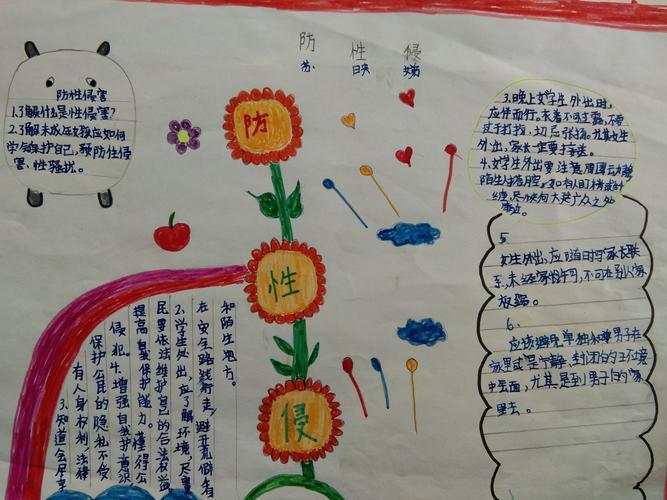 防 性 侵
苏 映
防性侵害
1.了解什么是性侵害?
2.了解未成年女孩应如何
学会保护自己,预防性侵
害、性骚扰。
防
性
侵
3.晚上女学生外出时,
应伴而行。衣着不可过露,不要
过于打扮,切忌张扬。尤其女生
外出,家长一定要接送。
4.女学生外出要注意周围动静
陌生人搭腔,如有人盯梢或纠
缠,尽快向大庭广众之处
靠近。
5.
女生外出,应随时与家长联
系,未经家长许可,不可在别人家
夜宿。
6.
应该避免单独和男子在
家里或是宁静、封闭的环境
中会面,尤其是到男子的家
里去。
和陌生地方。
在安全路线行走,避开荒僻
2.学生外出,应了解环境,尽量
民要依法维护自己的合法权益
提高自我保护能力。懂得公
侵犯。4.增强自我护意识,
保护公民的隐私不受
有人身权利,法律
3.知道公民享